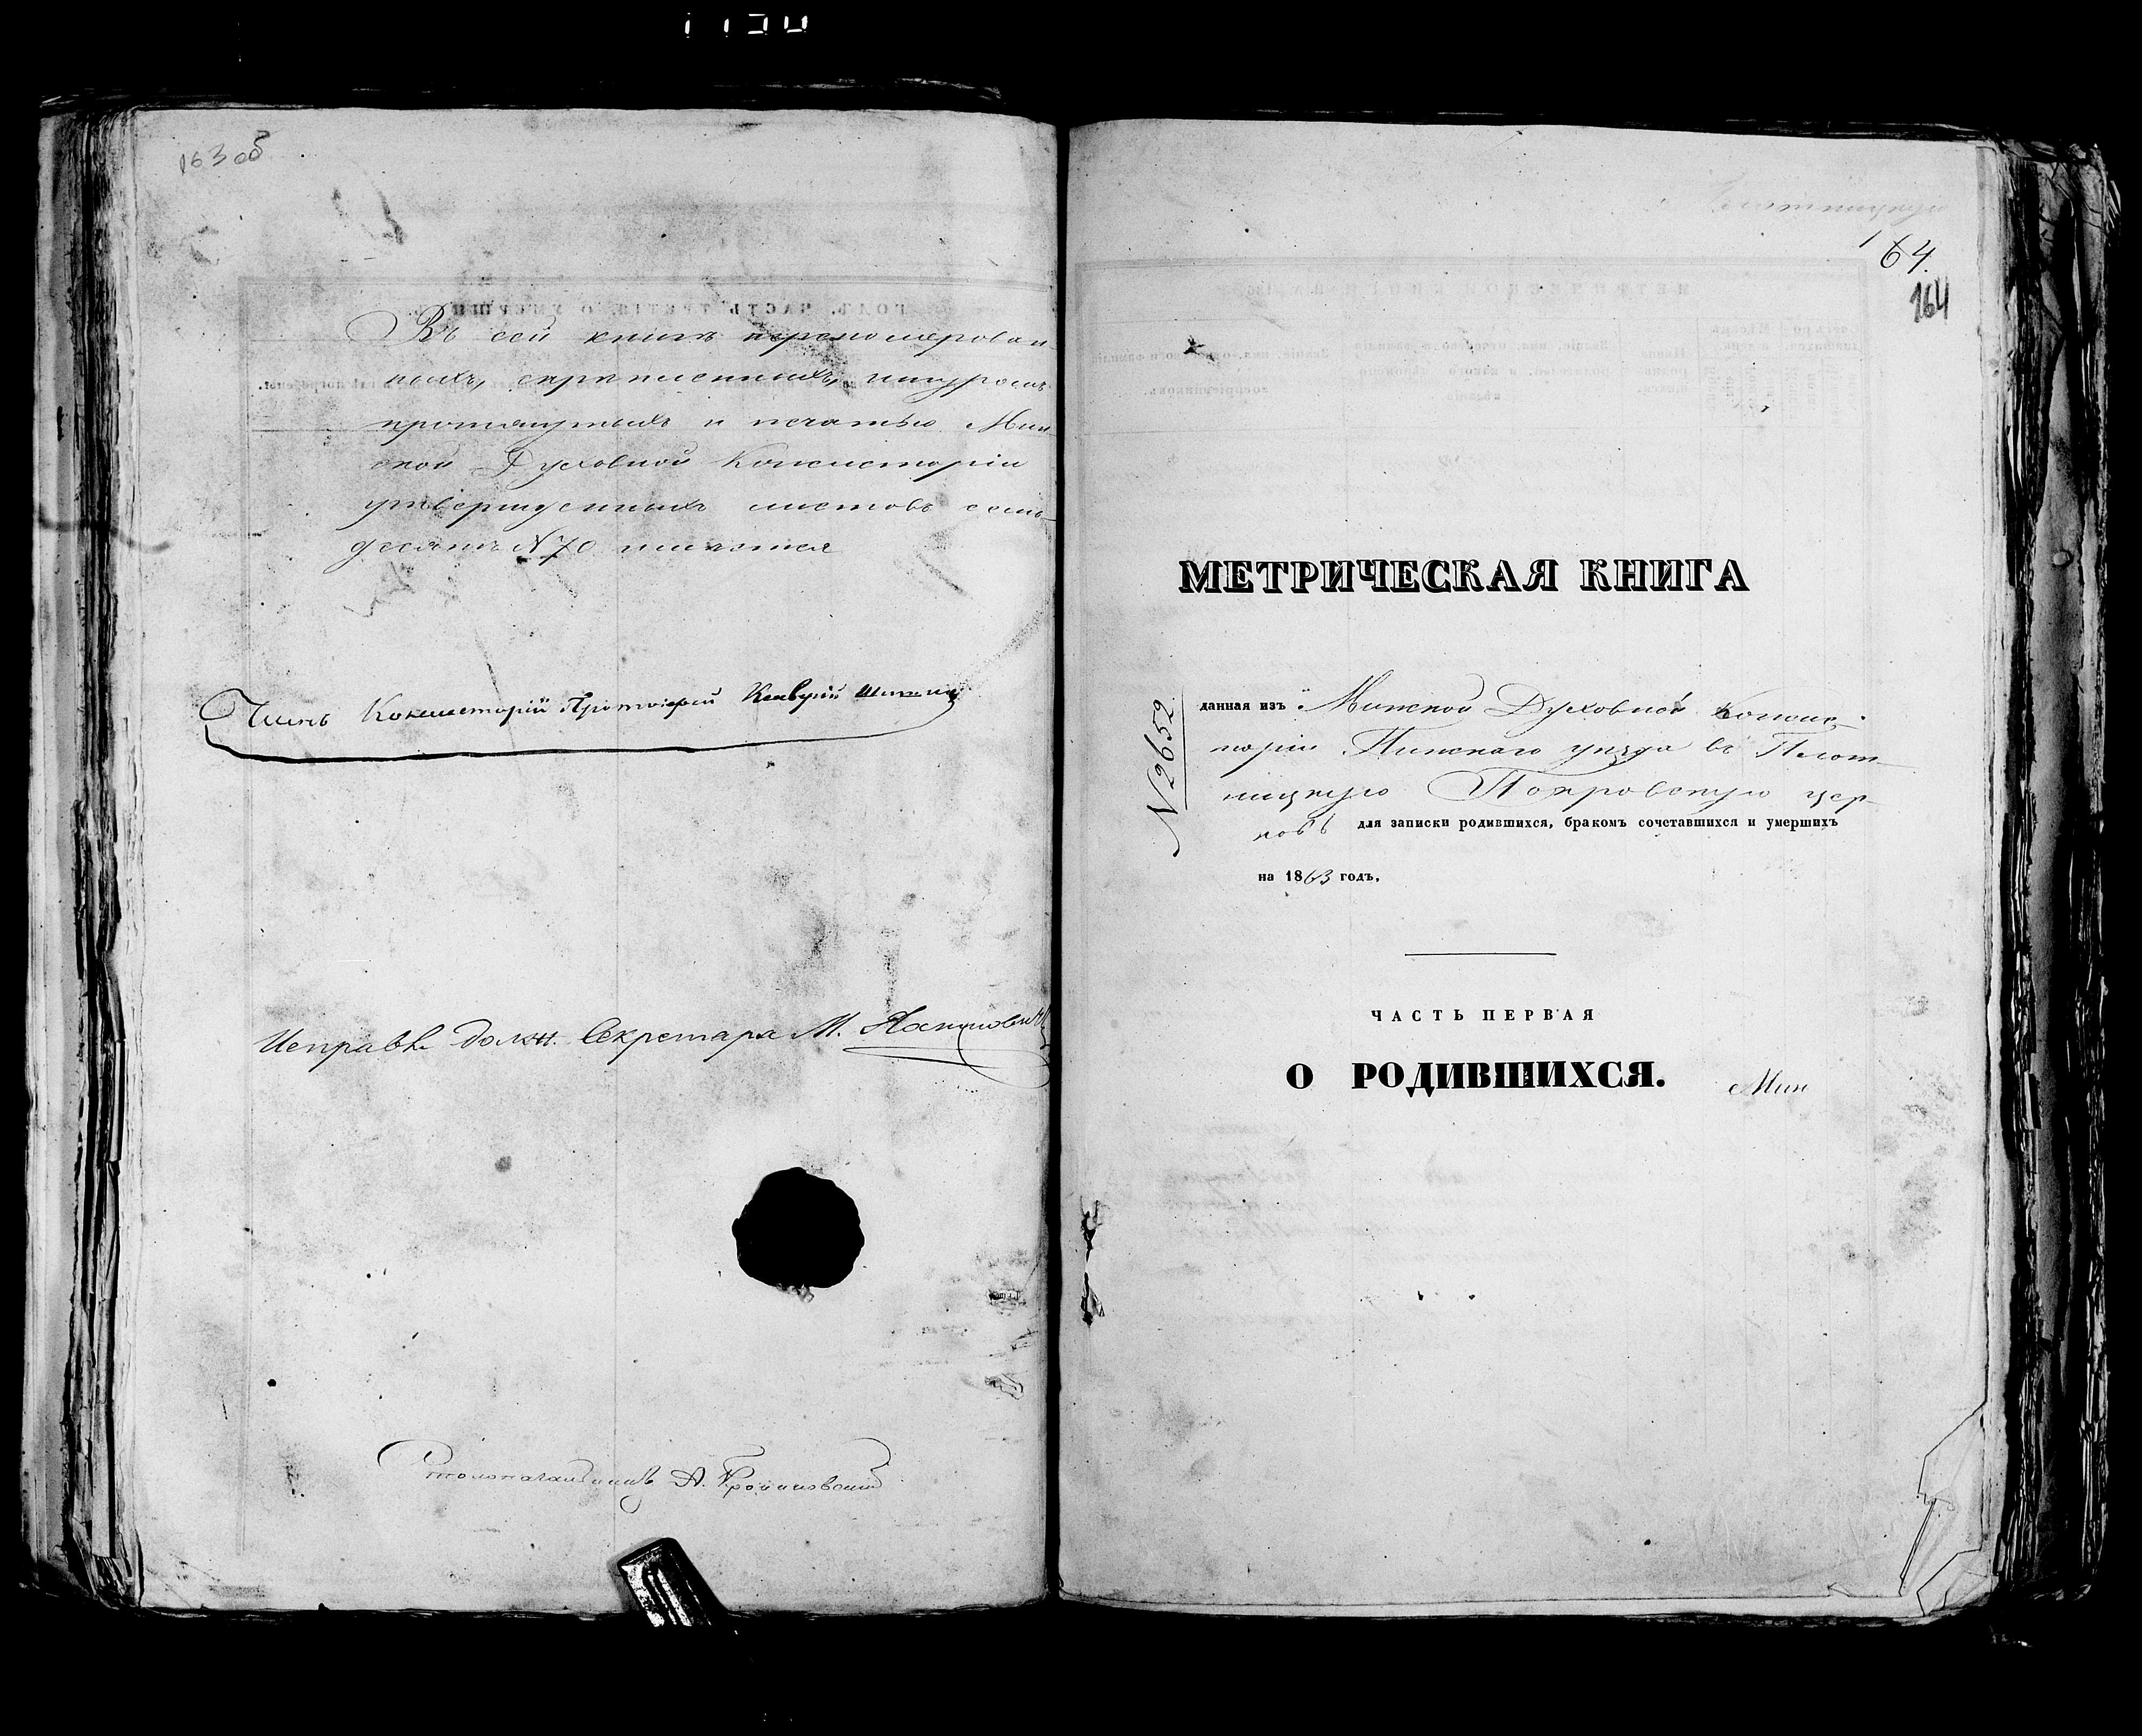 163 об
Въ сей книгѣ перенумерован-
ныхъ, скрѣпленныхъ, шнуромъ
протянутыхъ и печатью Мин-
ской Духовной Консисторіи
утвержденныхъ листовъ семь-
десятъ N 70 имѣется
Членъ Консисторіи Протоіерей
Исправл. должн. Секретаря М.
Столоначальникъ А.
164.
164
МЕТРИЧЕСКАЯ КНИГА
N 2652
данная изъ Минской Духовной Консис-
торіи Пинскаго уѣзда въ Плот-
ницкую Покровскую цер-
ковь для записки родившихся, бракомъ сочетавшихся и умершихъ
на 1863 годъ.
ЧАСТЬ ПЕРВАЯ
О РОДИВШИХСЯ.
Мин